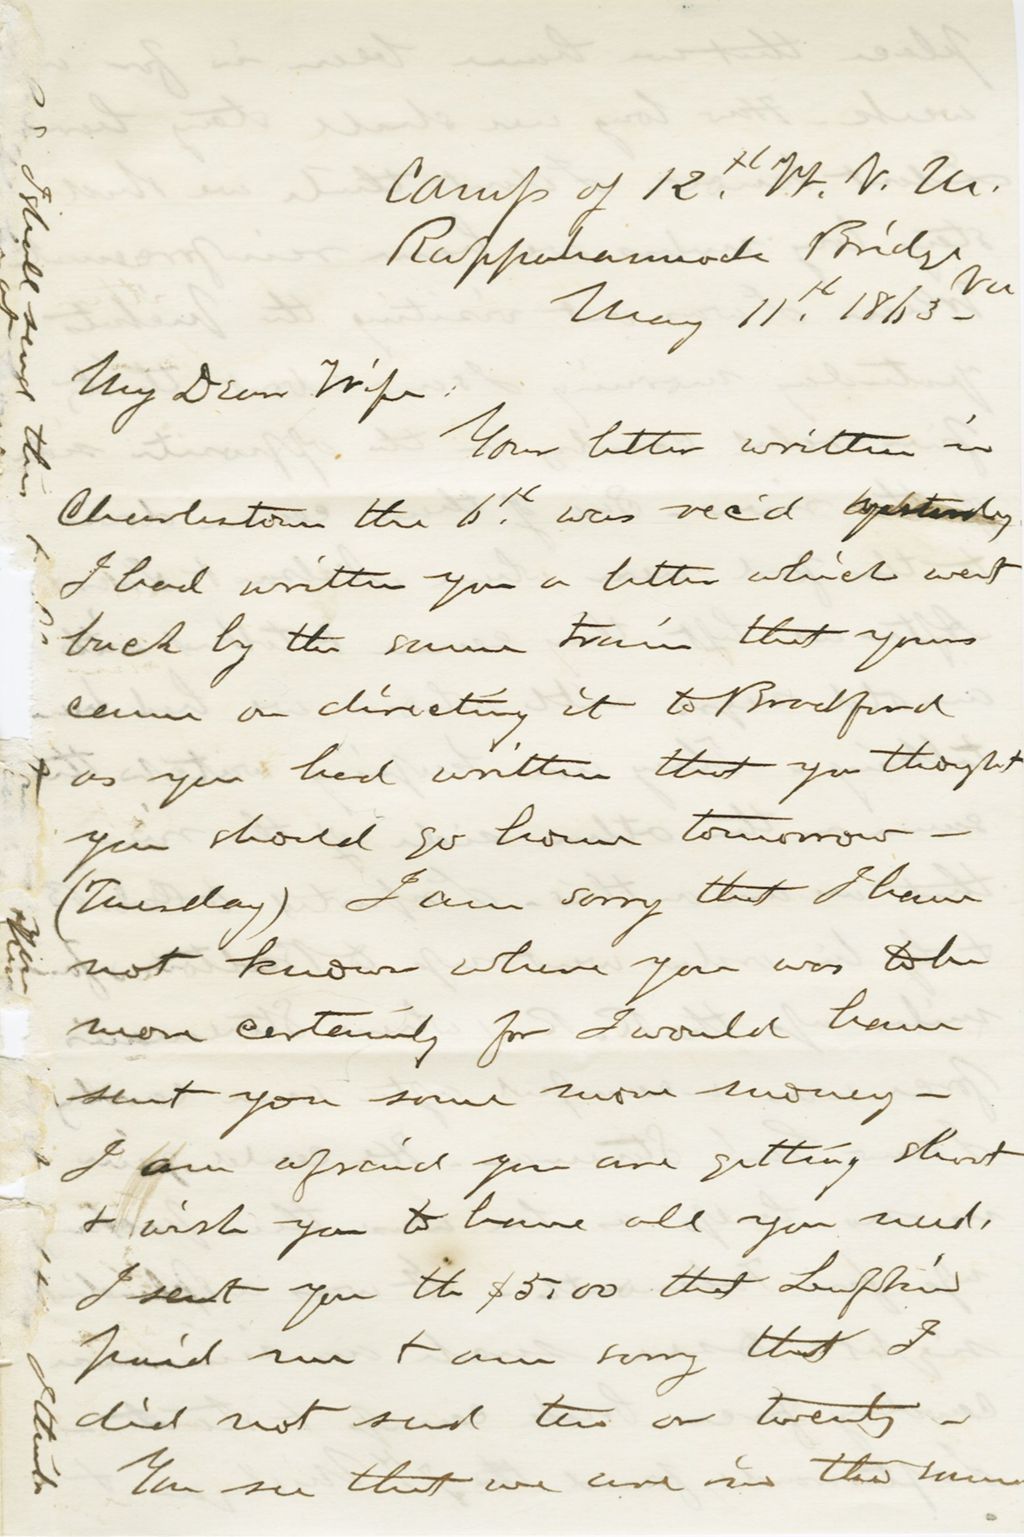 Camp of 12.th Vt. V. M.
Rappahannock Bridge
Va
May 11.th 1863 -
My Dear Wife:
Your letter written in
Charlestown the 6.th was rec'd yesterday
I had written you a letter which went
back by the same train that yours
came on directing it to Bradford
as you had written that you thought
you should go home tomorrow -
(Tuesday) I am sorry that I have
not known where you was to be
more certainly for I would have
sent you some more money -
I am afraid you are getting short
+ wish you to have all you need.
I sent you the $5.00 that Lufkin
paid me + am sorry that I
did not send ten or twenty -
You see that we are in the same
I shall send this
I think